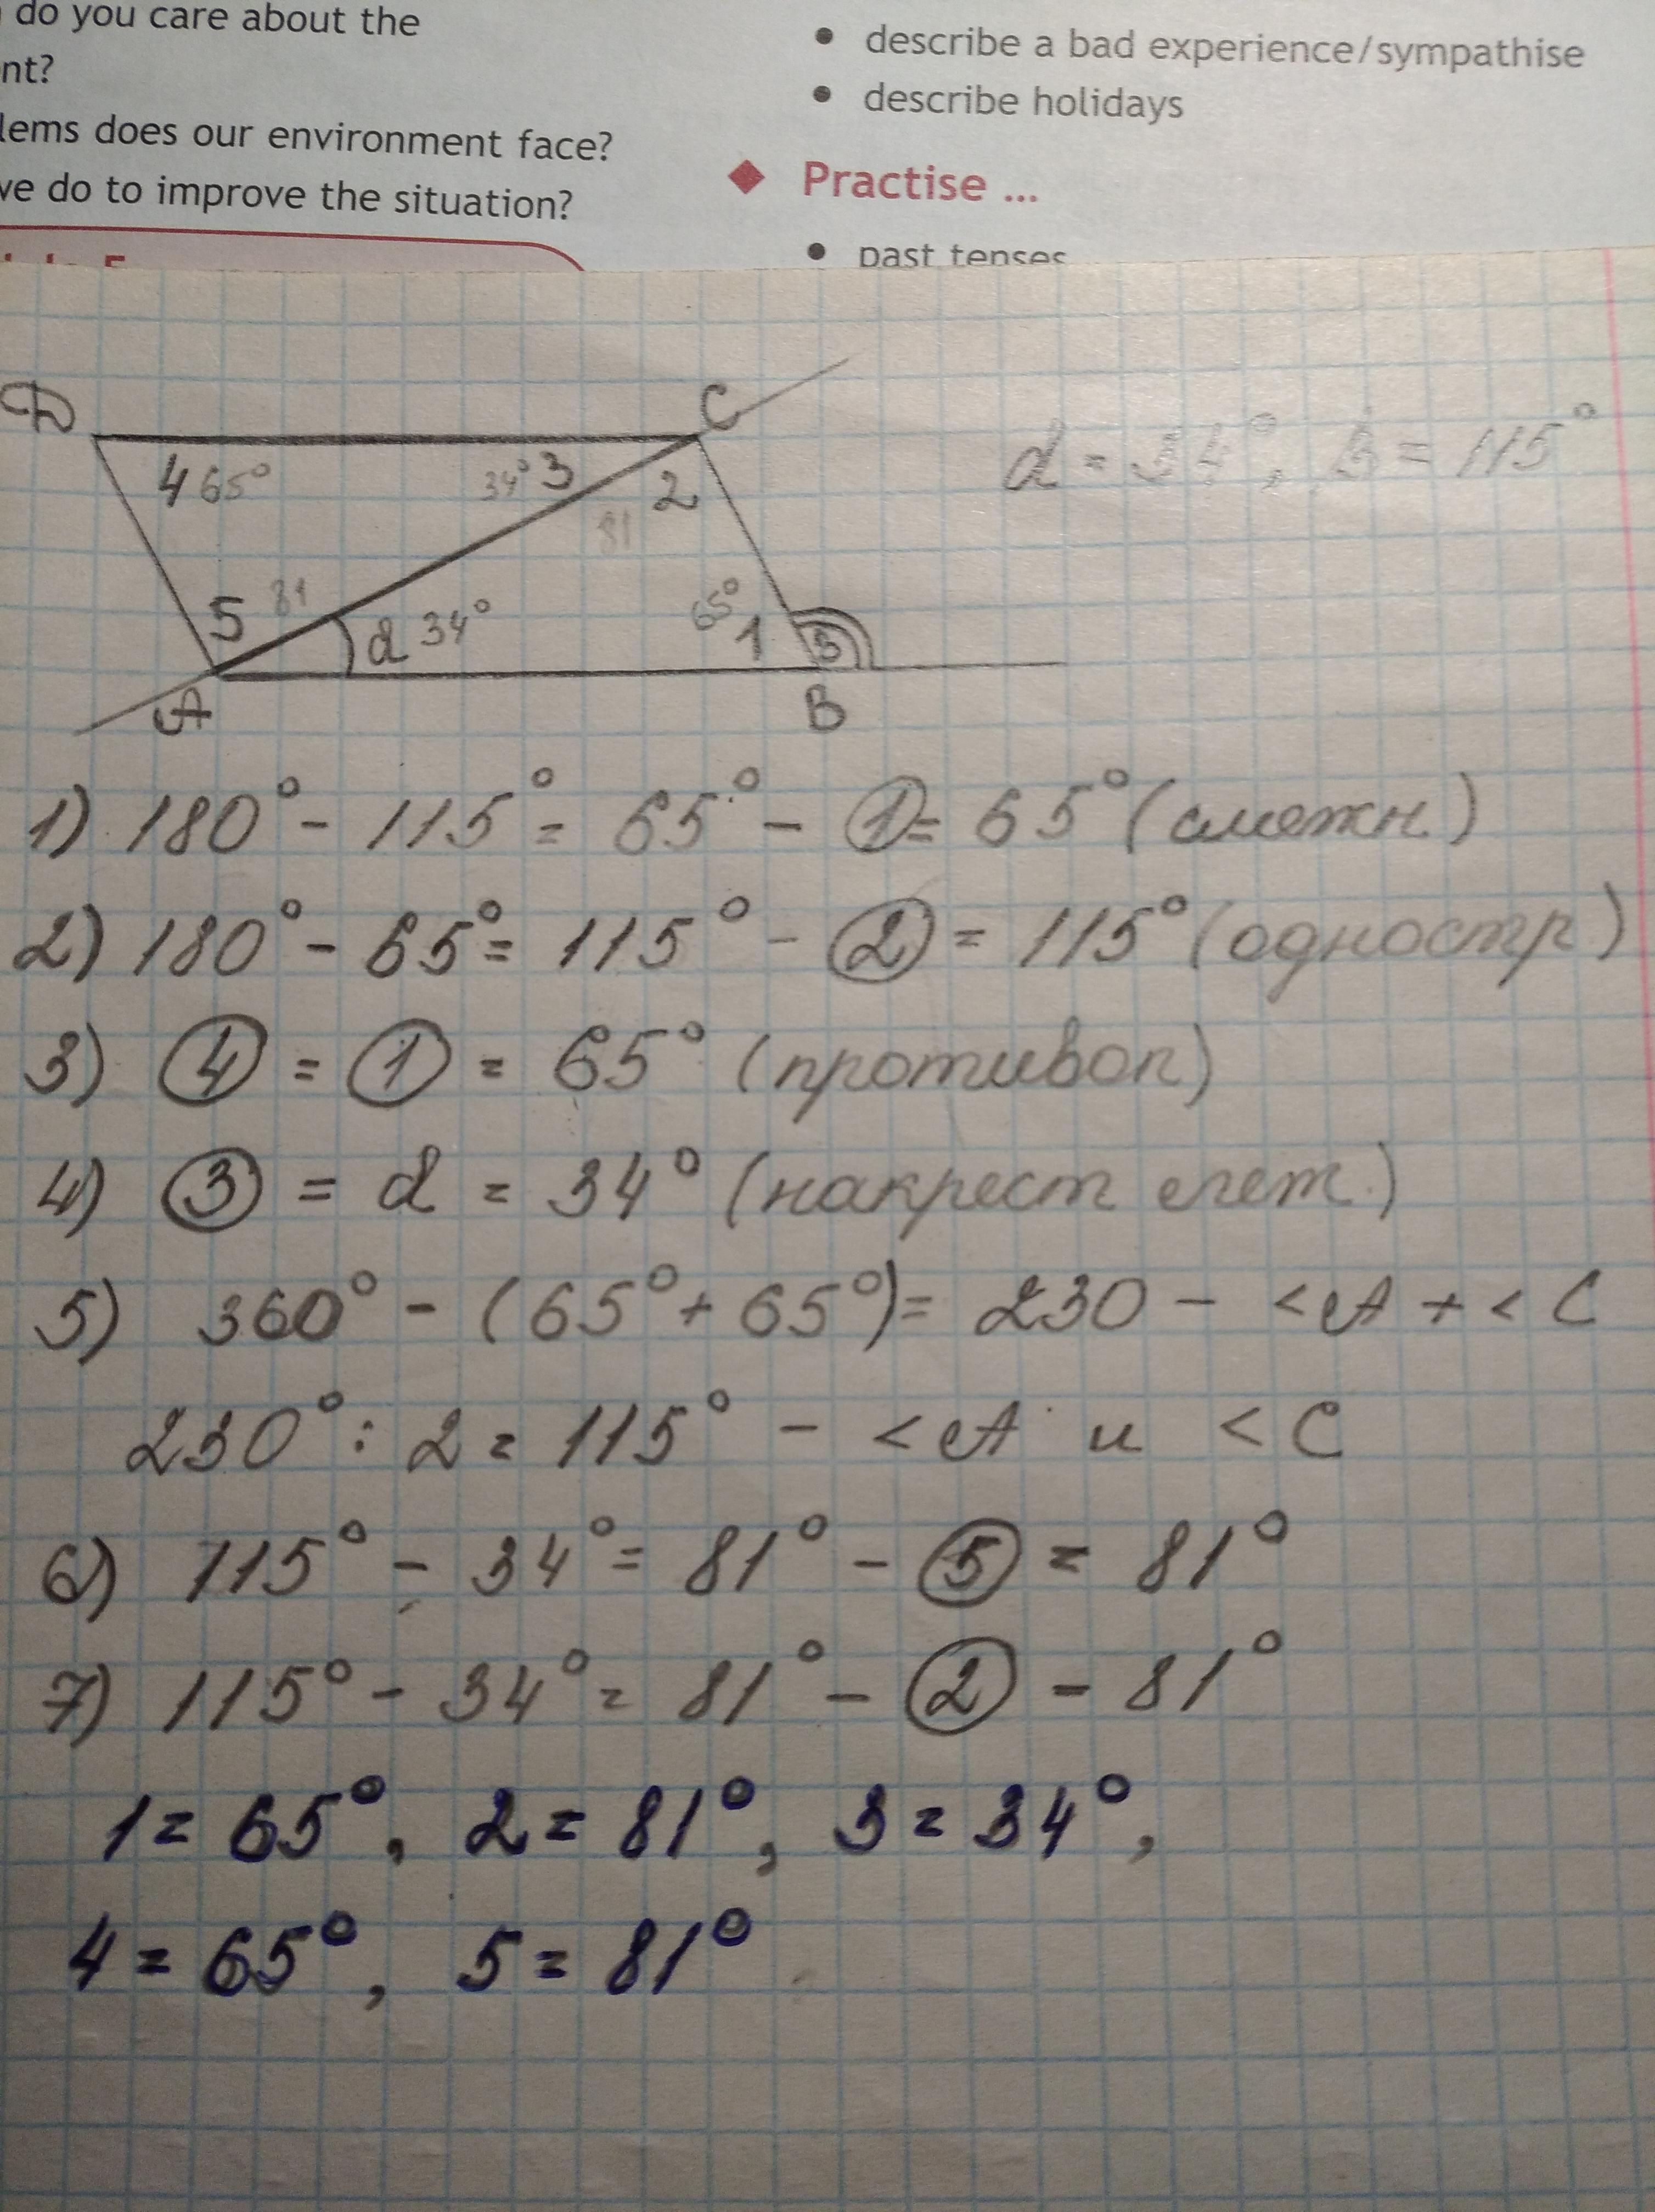 do you care about the
nt?
lems does our environment face?
ve do to improve the situation?
• describe a bad experience/sympathise
• describe holidays
◆ Practise ...
• past tenses
D
C
4 65°
34° 3
2
81
5 81
d 34°
65° 1
B
A
B
d = 34°, B = 115°
1) 180° - 115° = 65° - ① = 65° (смежн.)
2) 180° - 65° = 115° - ② = 115° (одностр.)
3) ④ = ① = 65° (противоп)
4) ③ = d = 34° (накрест лежт.)
5) 360° - (65° + 65°) = 230 - <A + <C
230° : 2 = 115° - <A и <C
6) 115° - 34° = 81° - ⑤ = 81°
7) 115° - 34° = 81° - ② - 81°
1 = 65°, 2 = 81°, 3 = 34°,
4 = 65°, 5 = 81°